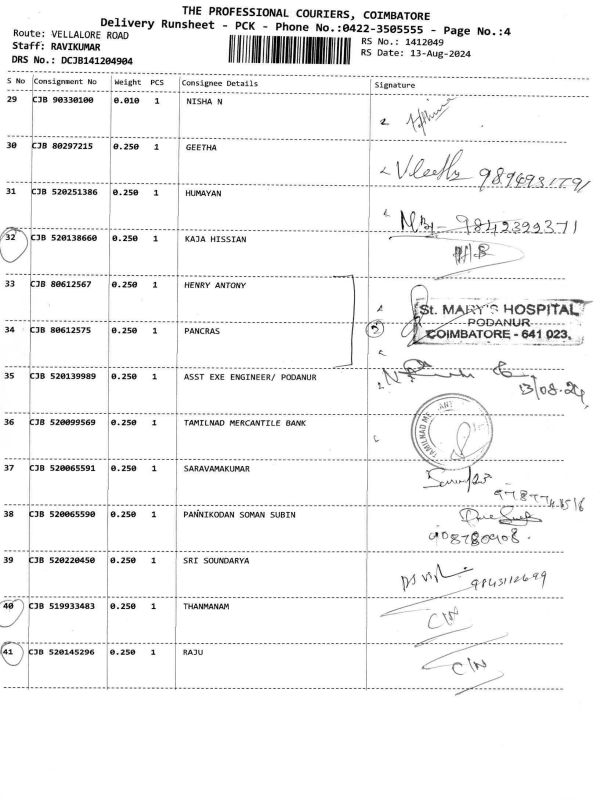 THE PROFESSIONAL COURIERS, COIMBATORE
Delivery Runsheet - PCK - Phone No.:0422-3505555 - Page No.:4
Route: VELLALORE ROAD
RS No.: 1412049
Staff: RAVIKUMAR
RS Date: 13-Aug-2024
DRS No.: DCJB141204904
S No Consignment No Weight PCS Consignee Details Signature
29 CJB 90330100 0.010 1 NISHA N
30 CJB 80297215 0.250 1 GEETHA
31 CJB 520251386 0.250 1 HUMAYAN
9842392371
32 CJB 520138660 0.250 1 KAJA HISSIAN
33 CJB 80612567 0.250 1 HENRY ANTONY
St. MARY'S HOSPITAL
PODANUR
34 CJB 80612575 0.250 1 PANCRAS
2
COIMBATORE - 641 023.
35 CJB 520139989 0.250 1 ASST EXE ENGINEER/ PODANUR
13/08.24
36 CJB 520099569 0.250 1 TAMILNAD MERCANTILE BANK
TAMILNAD ME
37 CJB 520065591 0.250 1 SARAVAMAKUMAR
38 CJB 520065590 0.250 1 PANNIKODAN SOMAN SUBIN
39 CJB 520220450 0.250 1 SRI SOUNDARYA
9843112699
40 CJB 519933483 0.250 1 THANMANAM
C/N
41 CJB 520145296 0.250 1 RAJU
C/N